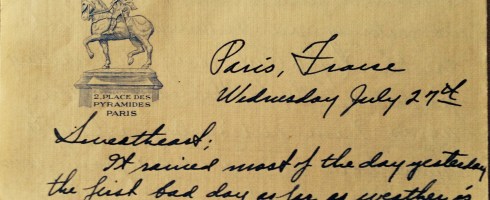 2, PLACE DES
PYRAMIDES
PARIS
Paris, France
Wednesday July 27th
Sweetheart;
It rained most of the day yesterday
the first bad day as far as weather is